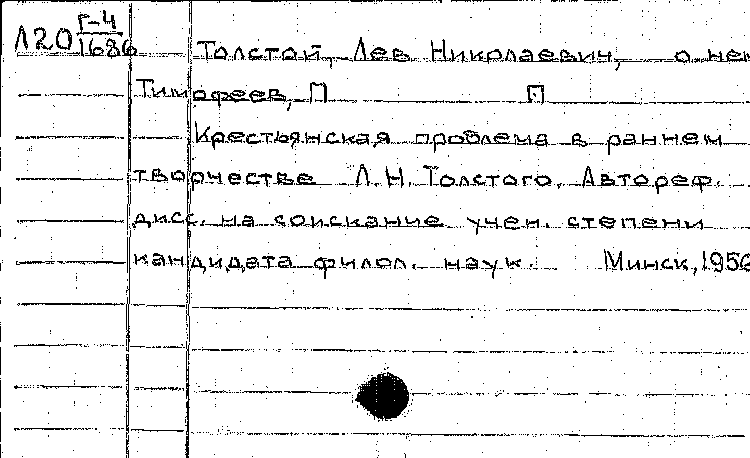 Л20 Г-4/1686
Толстой, Лев Николаевич, о нем
Тимофеев, П П
Крестьянская проблема в раннем
творчестве Л.Н. Толстого. Автореф.
дисс. на соискание учен. степени
кандидата филол. наук. Минск, 1956